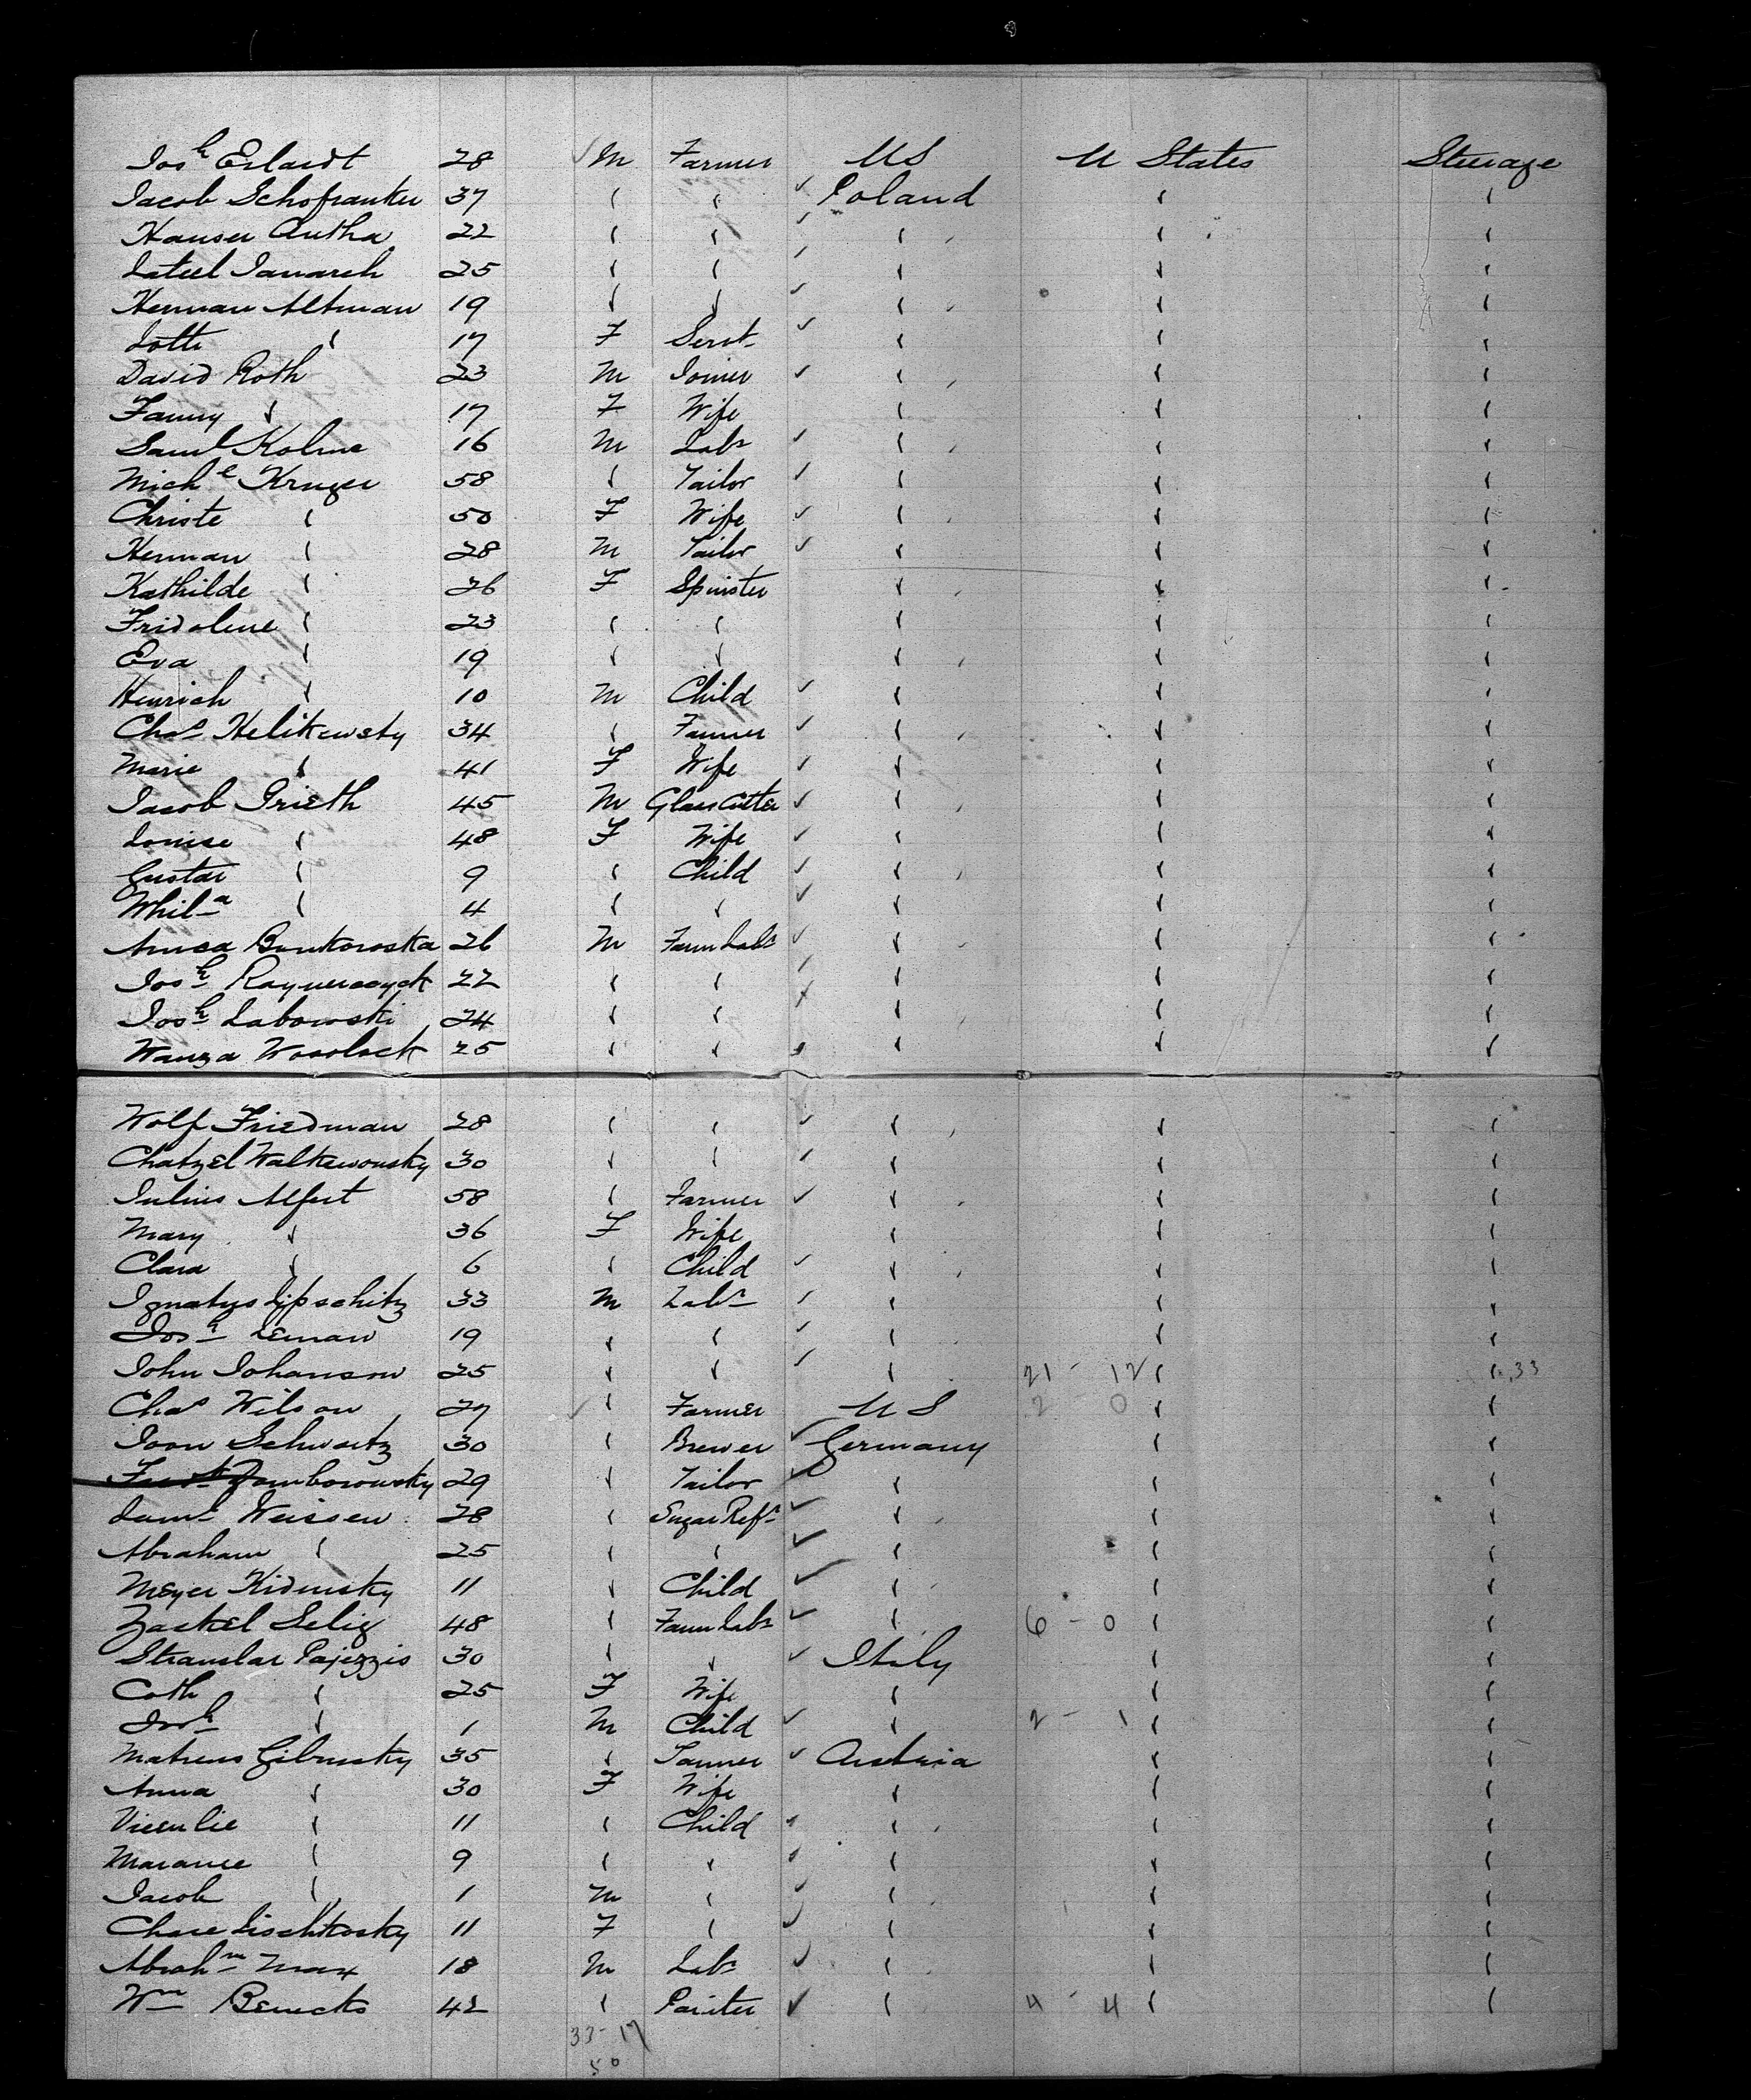 Josh Erlardt 28 M Farmer US U States Steerage
Jacob Schofranker 37 " " Poland " "
Hauser Autha 22 " " " " "
Lateel Janareh 25 " " " " "
Herman Altman 19 " " " " "
Lotte " 17 F Servt " " "
David Roth 23 M Joiner " " "
Fanny " 17 F Wife " " "
Saml Kolme 16 M Labr " " "
Michl Kruger 58 " Tailor " " "
Christe " 50 F Wife " " "
Herman " 28 M Tailor " " "
Kathilde " 26 F Spinster " " "
Fridoline " 23 " " " " "
Eva " 19 " " " " "
Henrich " 10 M Child " " "
Chas Kelikewsty 34 " Farmer " " "
Marie " 41 F Wife " " "
Jacob Grieth 45 M Glass Cutter " " "
Louise " 48 F Wife " " "
Gustav " 9 " Child " " "
Whila " 4 " " " " "
Bunkoroska 26 M Farm Labr " " "
Josh 22 " " " " "
Josh Labowski 24 " " " " "
Wanza Wosolock 25 " " " " "
Wolf Friedman 28 " " " " "
Chatzel Walkewousky 30 " " " " "
Julius Alfert 58 " Farmer " " "
Mary " 36 F Wife " " "
Clara " 6 " Child " " "
Ignatys Lipschitz 33 M Labr " " "
Josh Leman 19 " " " " "
John Johanson 25 " " " 21 - 12 " " 33
Chas Wilson 27 " Farmer US 2 - 0 " "
Joon Schwartz 30 " Brewer Germany " "
Zomborowsky 29 " Tailor " " "
Saml Weissen 28 " Sugar Refr " " "
Abraham " 25 " " " " "
Meyer Kidensky 11 " Child " " "
Zaskel Selig 48 " Farm Labr " 6 - 0 " "
Stranslar Pajezzis 30 " " Italy " "
Cath " 25 F Wife " " "
Josh " 1 M Child " 2 - 1 " "
Matreus Gibnisky 35 " Tanner Austria " "
Anna " 30 F Wife " " "
Vicenlie " 11 " Child " " "
Maranie " 9 " " " " "
Jacob " 1 M " " " "
Chare Lischkosky 11 F " " " "
Abrahm Max 18 M Labr " " "
Wm Benecks 42 " Painter " 4 - 4 " "
33 - 17
50